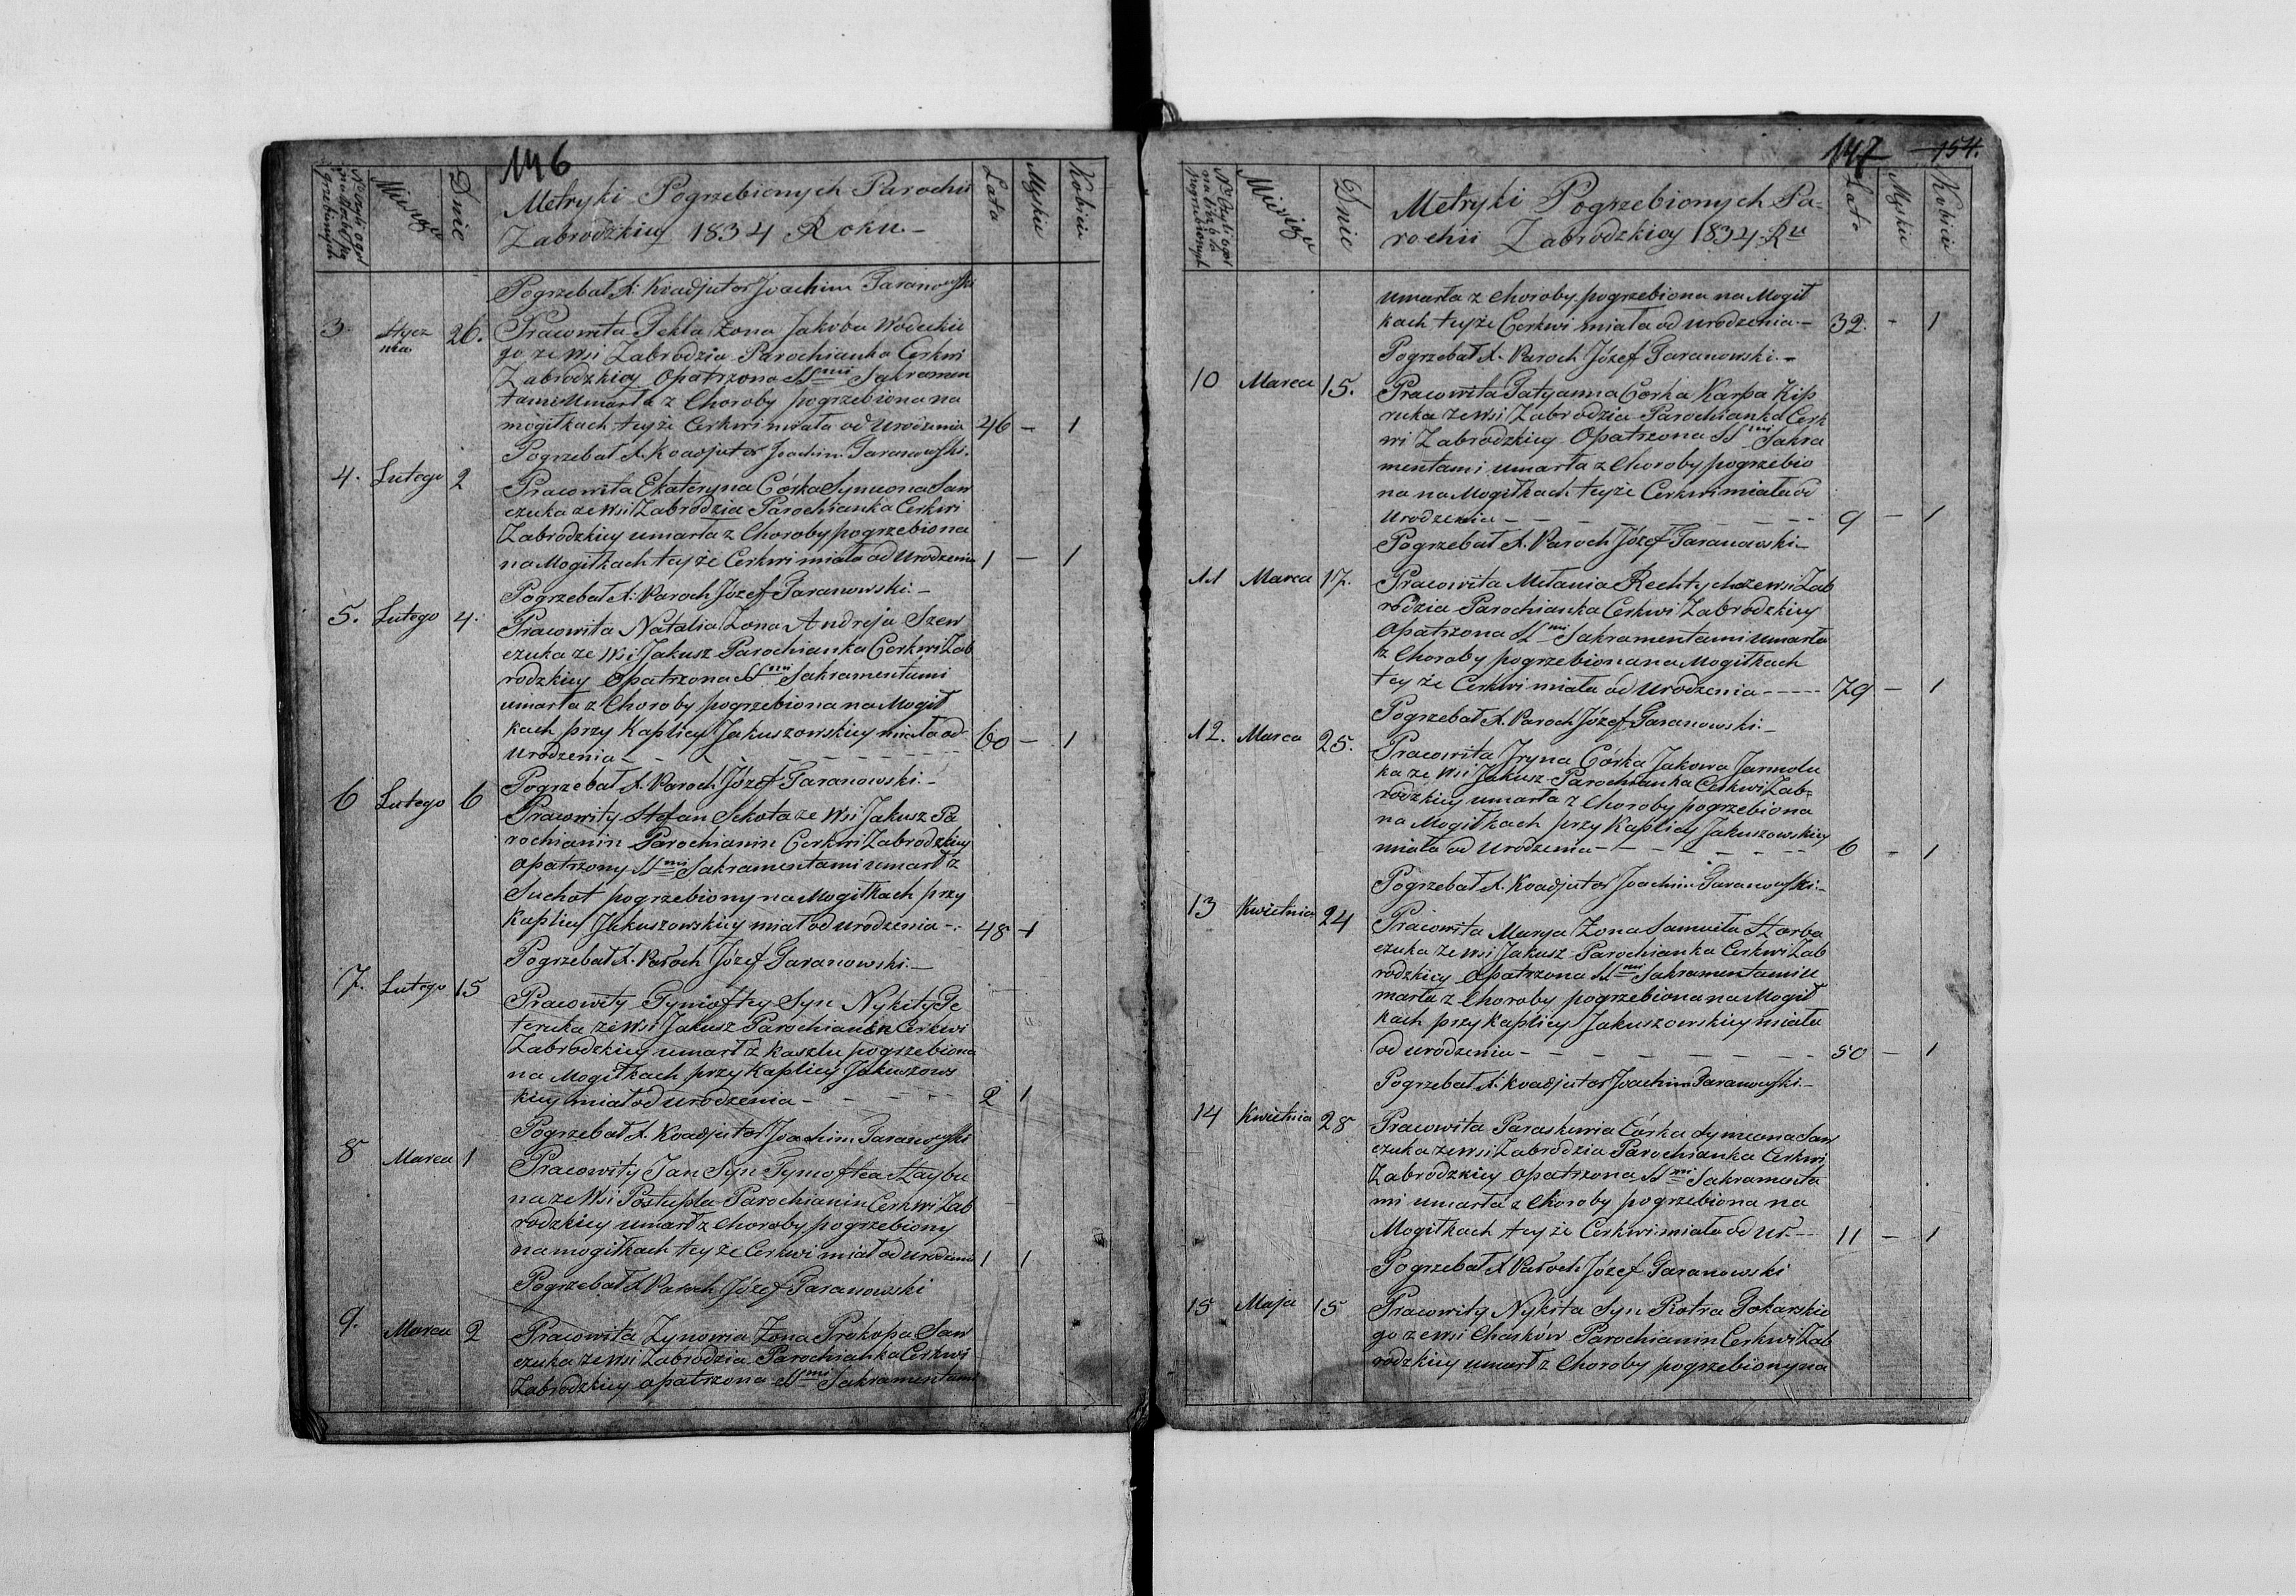 146
Miesiąc
Dnie
Metryki Pogrzebionych Parochii
Zabrodzkiey 1834 Roku.-
Lata
Męskie
Kobiéc
Pogrzebał X. Koadjutor Joachim Taranowski
3 Stycz 26. Pracowita Tekla Żona Jakóba Wodeckie
nia go ze Wsi Zabrodzia Parochianka Cerkwi
Zabrodzkiey Opatrzona SSmi Sakramen
tami umarła z Choroby pogrzebiona na
mogiłkach teyże Cerkwi miała od urodzenia 46 - 1
Pogrzebał X. Koadjutor Joachim Taranowski.
4. Lutego 2 Pracowita Ekateryna Córka Symeona Saw
czuka ze Wsi Zabrodzia Parochianka Cerkwi
Zabrodzkiey umarła z Choroby pogrzebiona
na Mogiłkach teyże Cerkwi miała od Urodzenia 1 - 1
Pogrzebał X. Paroch Józef Taranowski.-
5. Lutego 4. Pracowita Natalia Żona Andreja Szew
czuka ze Wsi Jakusz Parochianka Cerkwi Zab
rodzkiey Opatrzona SSmi Sakramentami
umarła z Choroby pogrzebiona na Mogił
kach przy Kaplicy Jakuszowskiey miała od 60 - 1
Urodzenia - - - - - -
Pogrzebał X. Paroch Józef Taranowski.-
6 Lutego 6 Pracowity Stefan Sekota ze Wsi Jakusz Pa
rochianin Parochianin Cerkwi Zabrodzkiey
opatrzony SSmi Sakramentami umarł z
Suchot pogrzebiony na Mogiłkach przy
Kaplicy Jakuszowskiey miał od urodzenia -. 48 1
Pogrzebał X. Paroch Józef Taranowski.-
7. Lutego 15 Pracowity Tymoftey Syn Nykity Pe
teruka ze Wsi Jakusz Parochianin Cerkwi
Zabrodzkiey umarł z kaszlu pogrzebiona
na Mogiłkach przy Kaplicy Jakuszows
kiey miał od urodzenia - - - - 2 1
Pogrzebał X. Koadjutor Joachim Taranowski
8 Marca 1 Pracowity Jan Syn Tymoftea
na ze Wsi Postupla Parochianin Cerkwi Zab
rodzkiey umarł z Choroby pogrzebiony
na mogiłkach teyże Cerkwi miał od urodzenia 1 1
Pogrzebał X. Paroch Józef Taranowski
9. Marca 2 Pracowita Zynowia Żona Prokopa Saw
czuka ze Wsi Zabrodzia Parochianka Cerkwi
Zabrodzkiey opatrzona SSmi Sakramentami
147 154.
Miesiąc
Dnie
Metryki Pogrzebionych Pa-
rochii Zabrodzkiey 1834. Ru
Lata
Męskie
Kobiéc
umarła z Choroby pogrzebiona na Mogił
kach teyże Cerkwi miała od urodzenia - 32. - 1
Pogrzebał X. Paroch Józef Taranowski.-
10 Marca 15. Pracowita Tatyanna Córka Karpa Kip
ruka ze Wsi Zabrodzia Parochianka Cerk
wi Zabrodzkiey Opatrzona SSmi Sakra
mentami umarła z Choroby pogrzebio
na na Mogiłkach teyże Cerkwi miała od
Urodzenia - - - - - 9 - 1
Pogrzebał X. Paroch Józef Taranowski.-
11 Marca 17. Pracowita Melania ze Wsi Zab
rodzia Parochianka Cerkwi Zabrodzkiey
Opatrzona SSmi Sakramentami umarła
z Choroby pogrzebiona na Mogiłkach
teyże Cerkwi miała od Urodzenia - - - - 79 - 1
Pogrzebał X. Paroch Józef Taranowski.-
12. Marca 25. Pracowita Jryna Córka Jakowa Jarmolu
ka ze Wsi Jakusz Parochianka Cerkwi Zab-
rodzkiey umarła z Choroby pogrzebiona
na Mogiłkach przy Kaplicy Jakuszowskiey
miała od Urodzenia - - - - - 6 - 1
Pogrzebał X. Koadjutor Joachim Taranowski.-
13 Kwietnia 24 Pracowita Marya Żona Samuiła Horba
czuka ze Wsi Jakusz Parochianka Cerkwi Zab
rodzkiey Opatrzona SSmi Sakramentami u
marła z Choroby pogrzebiona na Mogił
kach przy Kaplicy Jakuszowskiey miała
od urodzenia - - - - - - 50 - 1
Pogrzebał X. Koadjutor Joachim Taranowski.-
14 Kwietnia 28 Pracowita Paraskewia Córka Symeona Saw
czuka ze Wsi Zabrodzia Parochianka Cerkwi
Zabrodzkiey Opatrzona SSmi Sakramenta
mi umarła z Choroby pogrzebiona na
Mogiłkach teyże Cerkwi miała od Ur. - - 11 - 1
Pogrzebał X Paroch Józef Taranowski
15 Maja 15 Pracowity Nykita Syn Piotra Tokarskie
go ze Wsi Chasków Parochianin Cerkwi Zab
rodzkiey umarł z Choroby pogrzebiony na